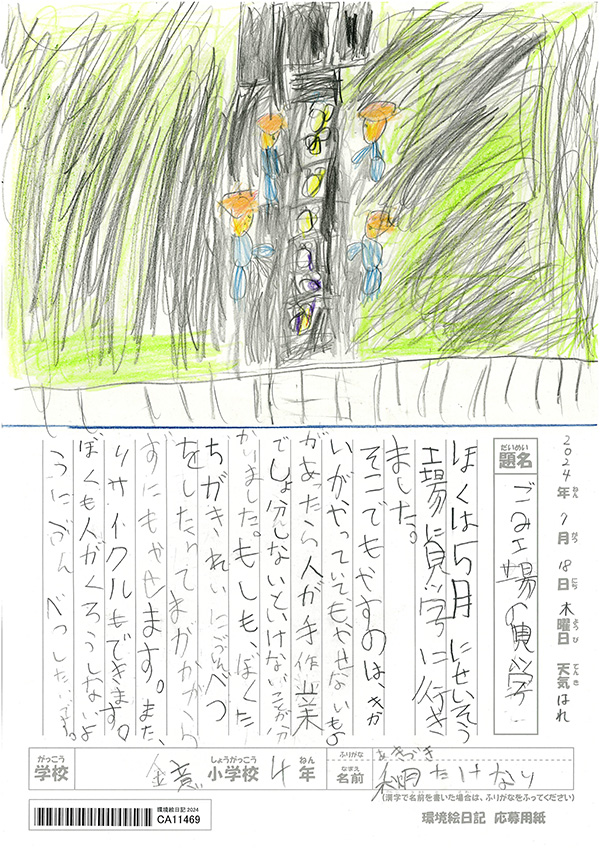 2024年7月18日木曜日 天気はれ
題名 ごみ工場の見学
ぼくは5月にせいそう
工場に見学に行き
ました。
そこでもやすのは、きか
いがやっていてもやせないもの
があったら人が手作業
でしょ分しないといけないことが分
かりました。もしも、ぼくた
ちがきれいにぶんべつ
をしたらてまがかから
ずにもやせます。また、
リサイクルもできます。
ぼくも人がくろうしないよ
うにぶんべつしたいです。
がっこう
学校
しょうがっこう
小学校 4年
ふりがな
なまえ
名前 たけなり
(漢字で名前を書いた場合は、ふりがなをふってください)
環境絵日記2024
CA11469
環境絵日記 応募用紙